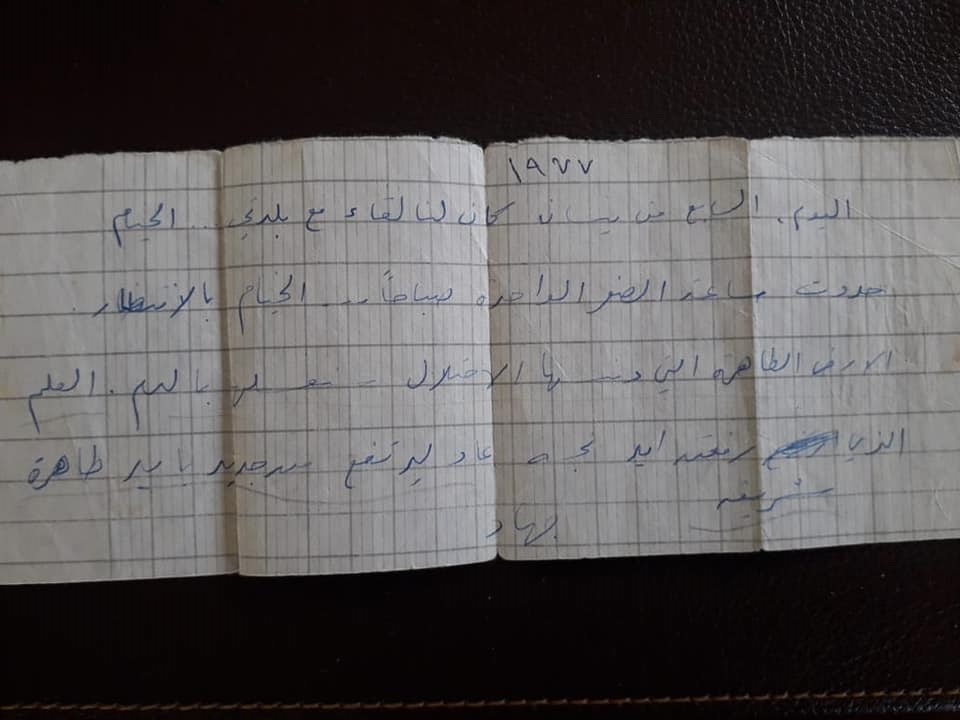 ١٩٧٧
اليوم. السابع من نيسان كان لنا لقاء مع بلدتي .. الخيام
حددت ساعة الصفر الواحدة صباحاً .. الخيام بالانتظار.
الارض الطاهرة التي دنسها الاحتلال - بالدم. العلم
الذي رفعته ايد عاد ليرتفع من جديد بايد طاهرة
شريفه
جهاد